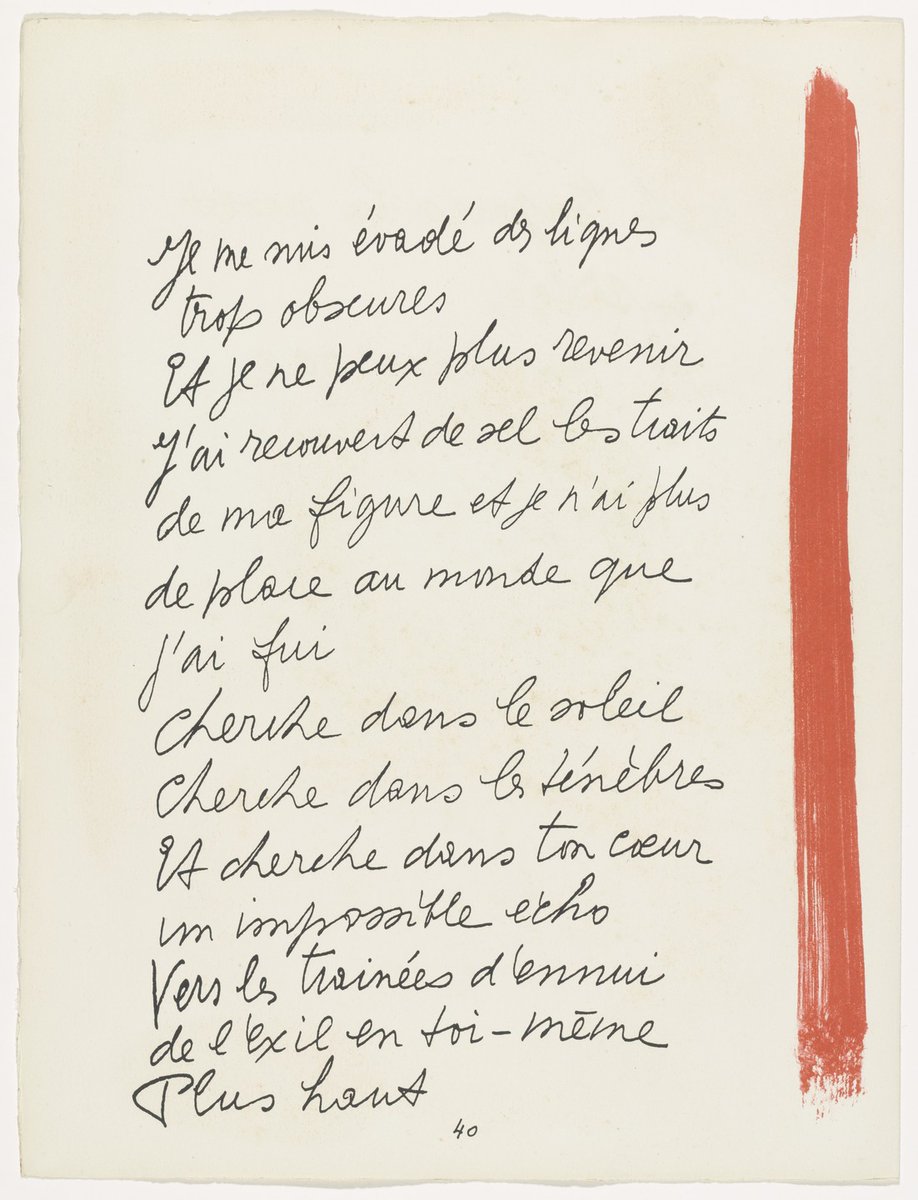 Je me suis évadé des lignes
trop obscures
Et je ne peux plus revenir
J'ai recouvert de sel les traits
de ma figure et je n'ai plus
de place au monde que
j'ai fui
Cherche dans le soleil
Cherche dans les ténèbres
Et cherche dans ton cœur
un impossible écho
Vers les trainées d'ennui
de l'exil en toi-même
Plus haut
40